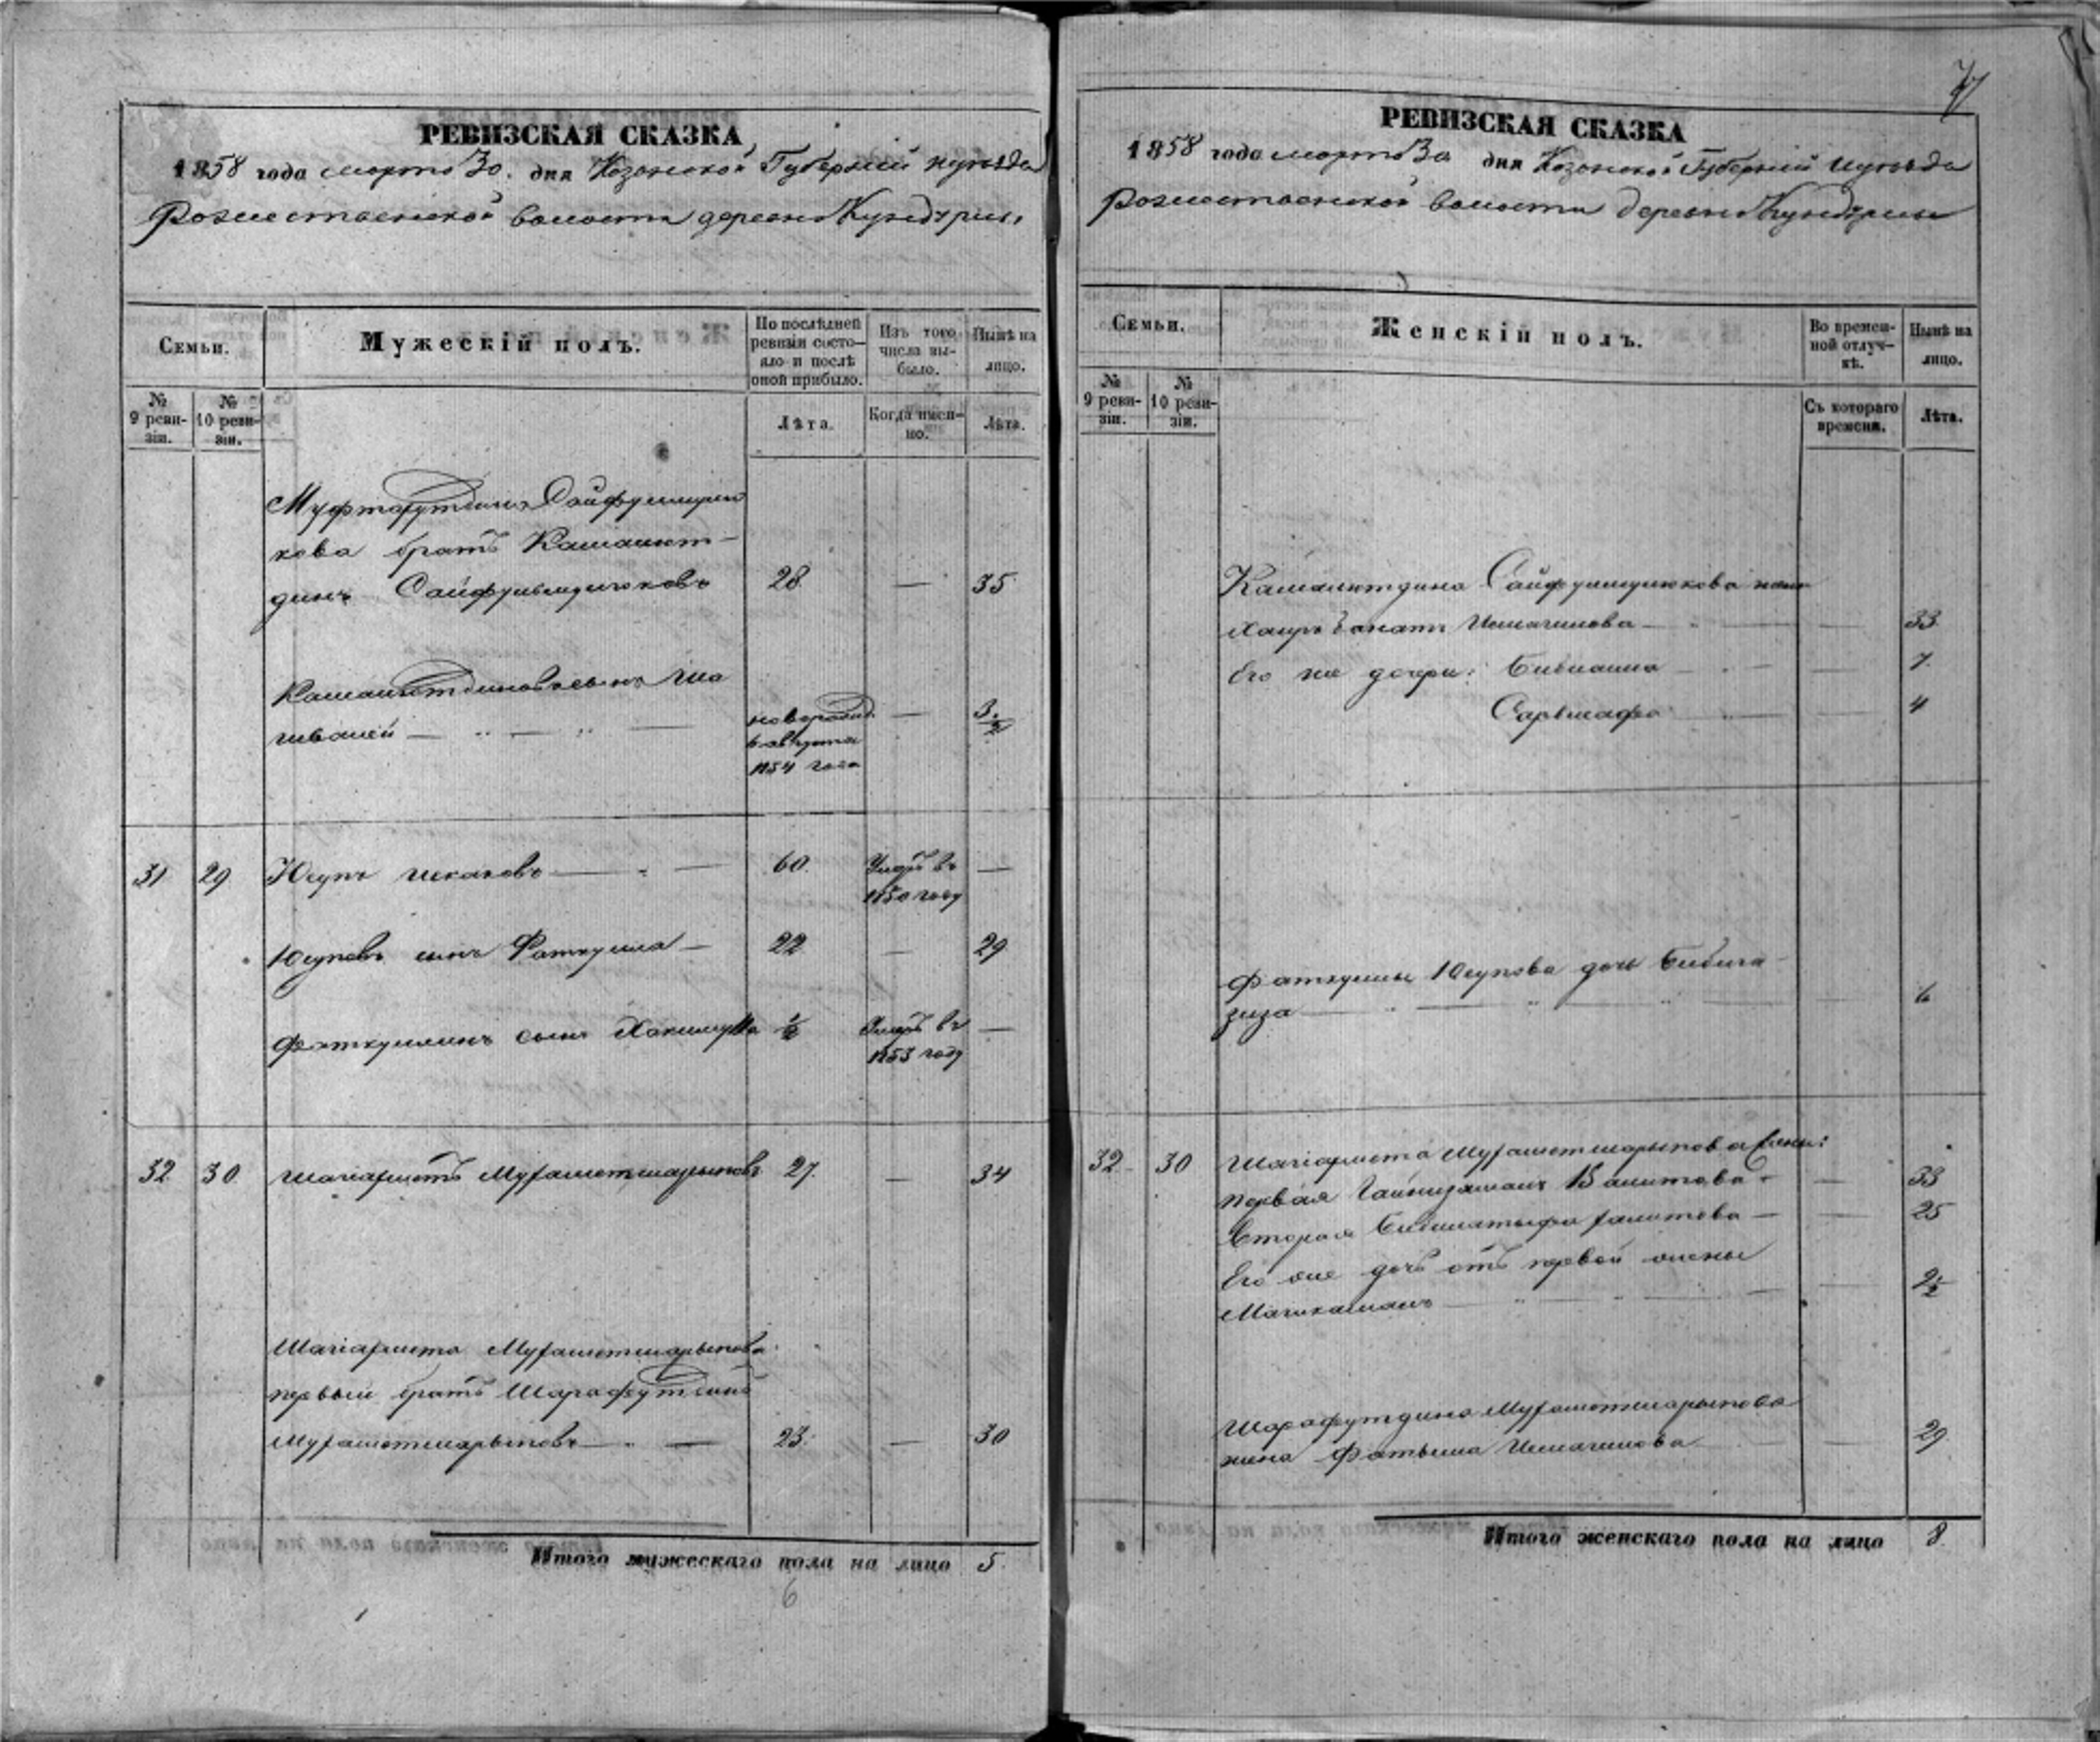 РЕВИЗСКАЯ СКАЗКА
1858 года марта 30. дня Казанской Губерніи уѣзда
Рожественской волости деревни Кундурлы
Семьи.
Мужескій полъ.
По послѣдней ревизіи состояло и послѣ оной прибыло.
Изъ того числа выбыло.
Нынѣ на лицо.
№ 9 ревизіи.
№ 10 ревизіи.
Лѣта.
Когда именно.
Лѣта.
Муфтахутдина Сайфульмулюкова братъ Камалетдинъ Сайфульмулюковъ
28
—
35
Камалетдиновъ сынъ
новорожд. 6 августа 1854 года
—
3 1/2
31
29
Юсупъ Исхаковъ
60
Умеръ въ 1850 году
—
Юсуповъ сынъ Фаткулла
22
—
29
Фаткуллинъ сынъ Хакимулла
1/2
Умеръ въ 1853 году
—
32
30
Шагіахметъ Мухаметшарыповъ
27
—
34
Шагіахмета Мухаметшарыпова
первый братъ Шарафутдинъ
Мухаметшарыповъ
23
—
30
Итого мужескаго пола на лицо 5.
6
РЕВИЗСКАЯ СКАЗКА
1858 года марта 30 дня Казанской Губерніи уѣзда
Рожественской волости деревни Кундурлы
Семьи.
Женскій полъ.
Во временной отлучкѣ.
Нынѣ на лицо.
№ 9 ревизіи.
№ 10 ревизіи.
Съ котораго времени.
Лѣта.
Камалетдина Сайфульмулюкова жена
Исмагилова
—
33
Его же дочери: Бибиашма
—
7
—
4
Фаткуллы Юсупова дочь Бибигазиза
—
6
32
30
Шагіахмета Мухаметшарыпова жены:
первая Гайнизяманъ Валитова
—
33
вторая Халитова
—
25
Его же дочь отъ первой жены
—
2 1/2
Шарафутдина Мухаметшарыпова
жена Фатыма Исмагилова
—
29
Итого женскаго пола на лицо 8.